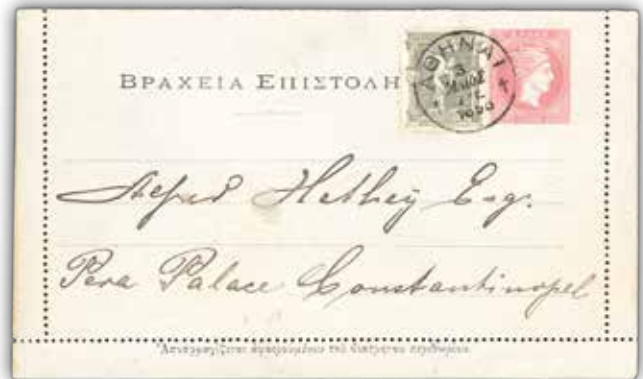 ΒΡΑΧΕΙΑ ΕΠΙΣΤΟΛΗ
ΑΘΗΝΑΙ
Alfred Hethey Esq.
Pera Palace Constantinopel